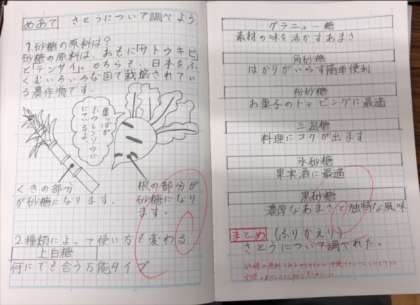 めあて さとうについて調べよう
1.砂糖の原料は?
砂糖の原料は、おもに「サトウキビ」
と「テンサイ」にわかれ、日本をふ
くむいろいろな国で栽培されてい
る農作物です。
くきの部分
が砂糖になります。
根の部分が
砂糖になり
ます。
2.種類によって使い方も変わる。
上白糖
何にでも合う万能タイプ
グラニュー糖
素材の味を活かすあまさ
角砂糖
はかりがいらず簡単便利
粉砂糖
お菓子のトッピングに最適
三温糖
料理にコクが出ます
氷砂糖
果実酒に最適
黒砂糖
濃厚なあまさと独特な風味
まとめ (ふりかえり)
さとうについて調べれた。